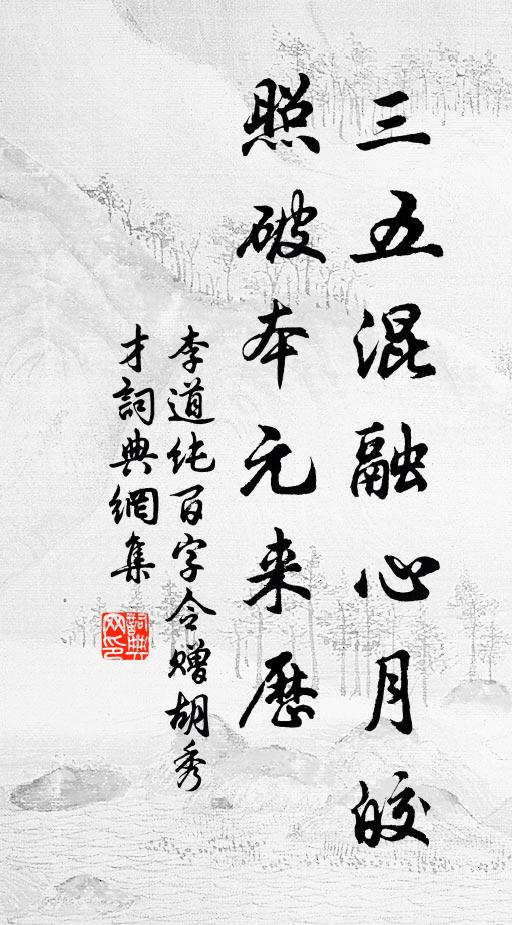 三五混融心月皎
照破本元来歷
李道純百字令贈胡秀
才詞典網集
詞典网印